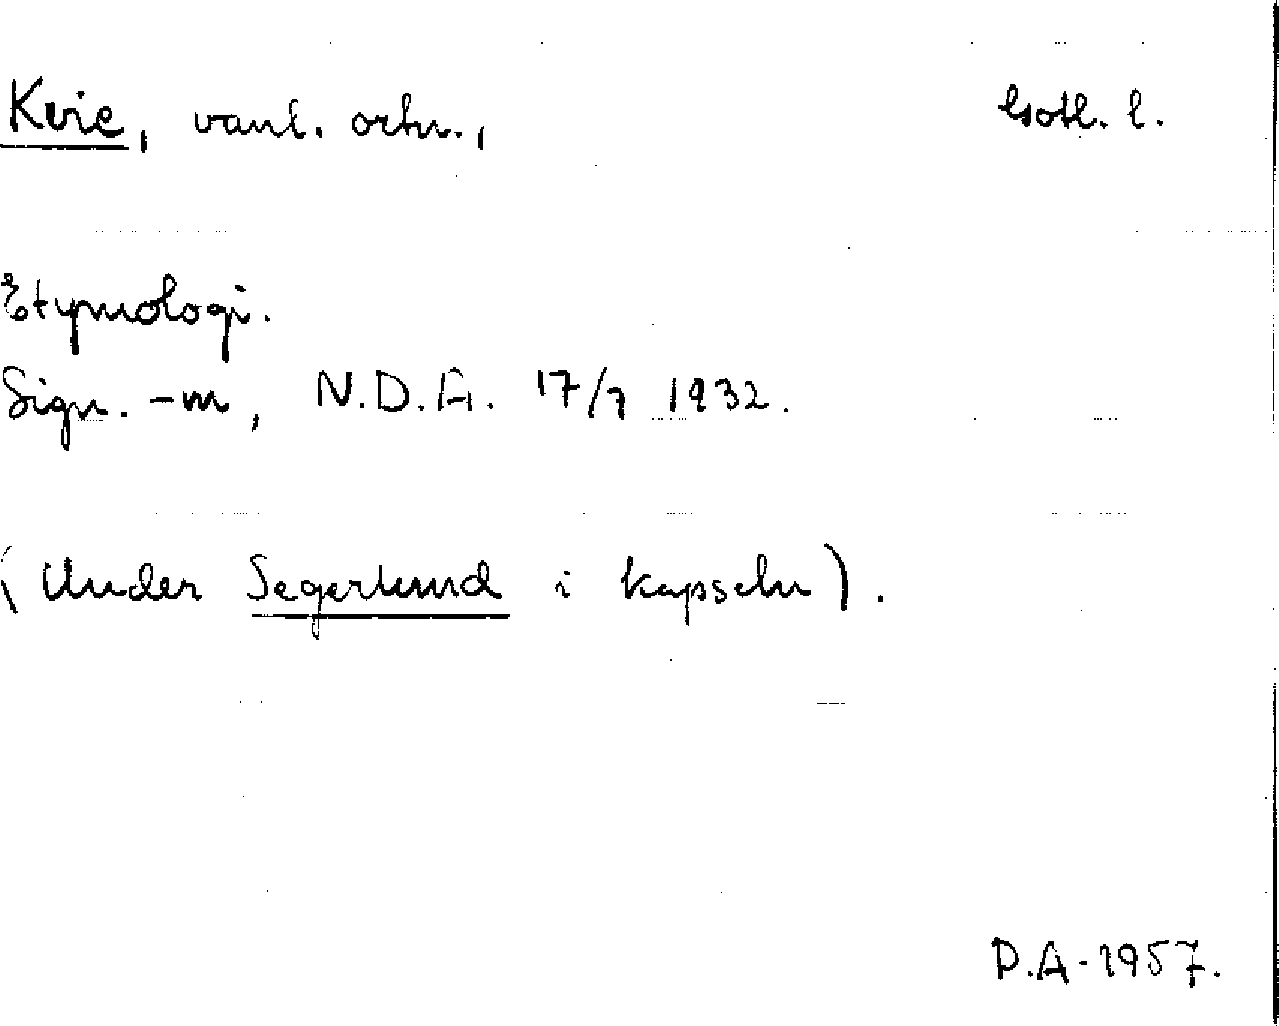 Kvie, vanl. ortn., Gotl. l.
Etymologi.
Sign. -m, N.D.A. 17/7 1932.
(Under Segerlund i kapseln).
D.A-1957.